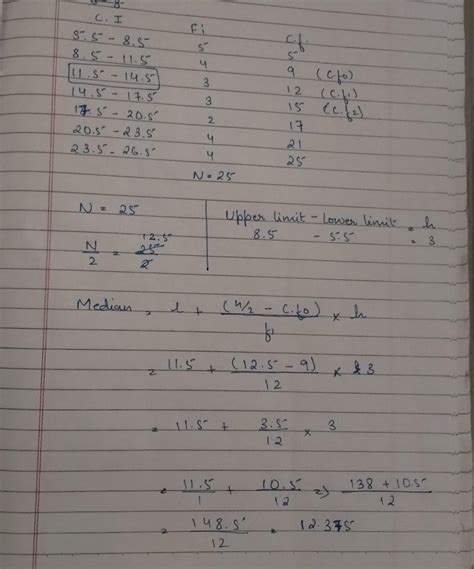 C.I Fi C.f.
5.5 - 8.5 5 5
8.5 - 11.5 4 9 (C.f0)
11.5 - 14.5 3 12 (C.f1)
14.5 - 17.5 3 15 (C.f2)
17.5 - 20.5 2 17
20.5 - 23.5 4 21
23.5 - 26.5 4 25
N = 25
N = 25
Upper limit - Lower limit = h
8.5 - 5.5 = 3
12.5
N/2 = 25/2
Median = l + (n/2 - C.f0)/f1 × h
= 11.5 + (12.5 - 9)/12 × 3
= 11.5 + 3.5/12 × 3
= 11.5/1 + 10.5/12 => 138 + 10.5/12
= 148.5/12 = 12.375